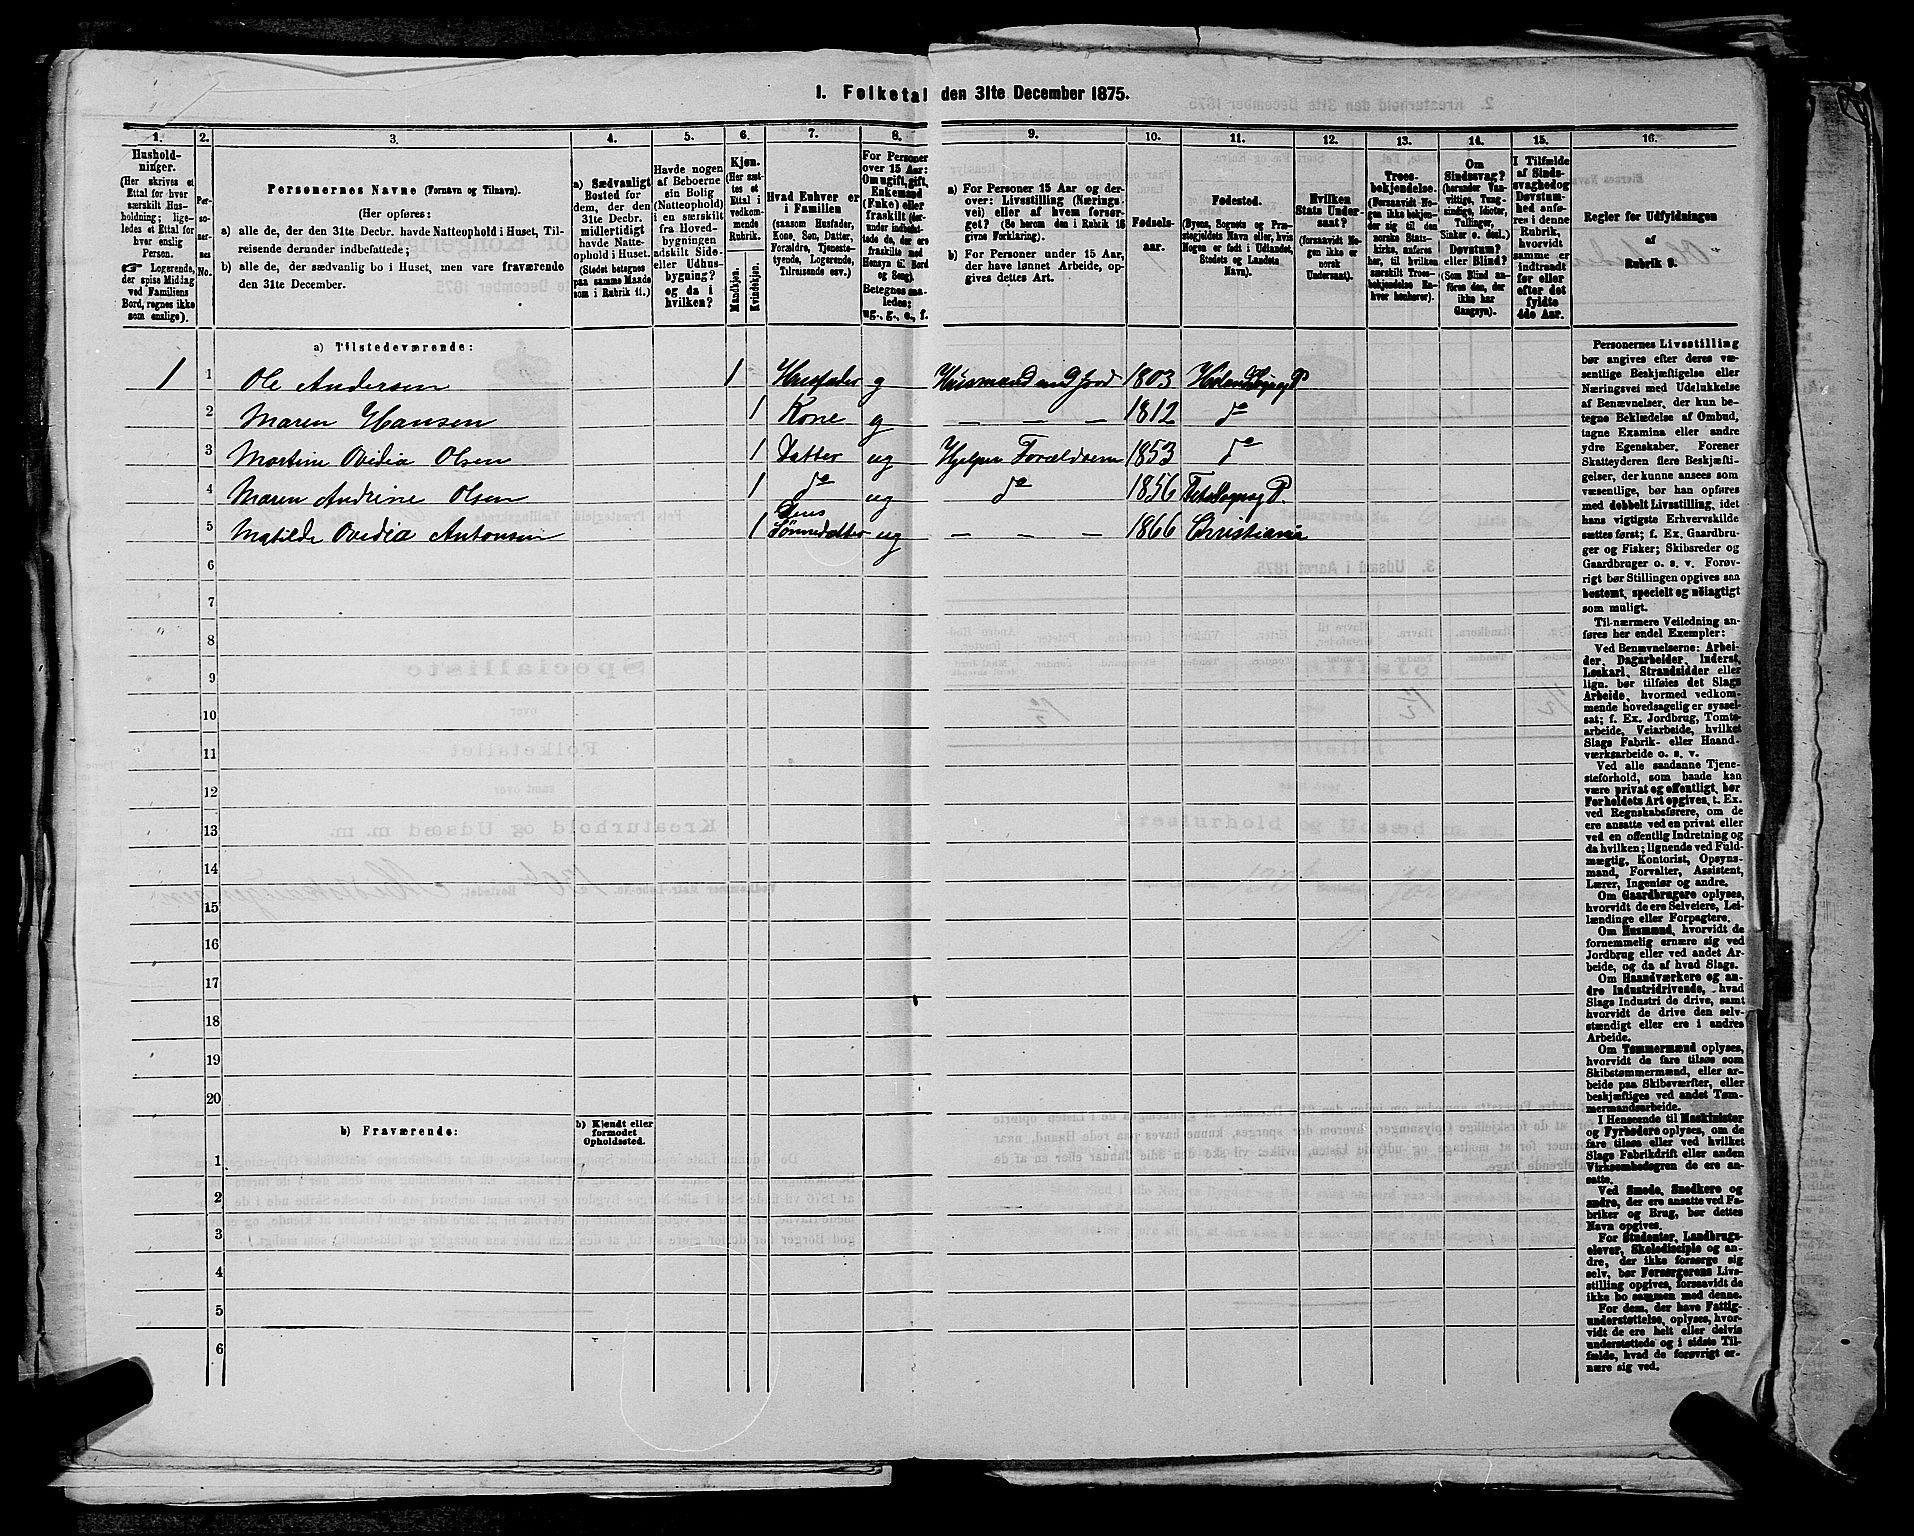 1. Folketal den 31te December 1875.
1. 2. 3. 4. 5. 6. 7. 8. 9. 10. 11. 12. 13. 14. 15. 16.
Hushold-
ninger.
(Her skrives et
Ettal for hver
særskilt Hus-
holdning; lige-
ledes et Ettal for
hver enslig
Person.
Logerende,
der spise Middag
ved Familiens
Bord, regnes ikke
som enslige).
Per-
so-
ner-
nes
No.
Personernes Navne (Fornavn og Tilnavn).
(Her opføres:
a) alle de, der den 31te Decbr. havde Natteophold i Huset, Til-
reisende derunder indbefattede;
b) alle de, der sædvanlig bo i Huset, men vare fraværende
den 31te December.
a) Sædvanligt
Bosted for
dem, der den
31te Decbr.
midlertidigt
havde Natte-
ophold i Huset.
(Stedet betegnes
paa samme Maade
som i Rubrik 11.)
Havde nogen
af Beboerne
sin Bolig
(Natteophold)
i en særskilt
fra Hoved-
bygningen
adskilt Side-
eller Udhus-
bygning?
og da i
hvilken?
Kjøn.
(Her sæt-
tes et
Ettal i
vedkom-
mende
Rubrik.
Mandkjøn.
Kvindekjøn.
Hvad Enhver er
i Familien
(saasom Husfader,
Kone, Søn, Datter,
Forældre, Tjeneste-
tyende, Logerende,
Tilreisende osv.)
For Personer
over 15 Aar:
Om ugift, gift,
Enkemand
(Enke) eller
fraskilt (der-
under indbefat-
tede de, der ere
fraskilte med
Hensyn til Bord
og Seng).
Betegnes saa-
ledes:
ug., g., e., f.
a) For Personer 15 Aar og der-
over: Livsstilling (Nærings-
vei) eller af hvem forsør-
get? (Se herom den i Rubrik 16
givne Forklaring).
b) For Personer under 15 Aar,
der have lønnet Arbeide, op-
gives dettes Art.
Fødsels-
aar.
Fødested.
(Byens, Sognets og Præ-
stegjeldets Navn eller, hvis
Nogen er født i Udlandet,
Stedets og Landets
Navn).
Hvilken
Stats Under-
saat?
(forsaavidt No-
gen ikke er
norsk
Undersaat).
Troes-
bekjendelse.
(Forsaavidt No-
gen ikke bekjen-
der sig til den
norske Stats-
kirke, anføres
her, til hvilken
særskilt Troes-
bekjendelse En-
hver henhører).
Om
Sindssvag?
(herunder Van-
vittige, Tung-
sindige, Idioter,
Tullinger,
Sinker o. desl.).
Døvstum?
eller Blind?
(Som Blind an-
føres den, der
ikke har
Gangsyn).
I Tilfælde
af Sinds-
svaghed og
Døvstum-
hed anfø-
res i denne
Rubrik,
hvorvidt
samme er
indtraadt
før eller
efter det
fyldte
4de Aar.
Regler for Udfyldningen
af
Rubrik 9.
a) Tilstedeværende:
1 1 Ole Andersen 1 Husfader g Husmand med Jord 1803
2 Maren Hansen 1 Kone g — — — 1812 do
3 Martine Ovedia Olsen 1 Datter ug Hjelper Forældrene 1853 do
4 Maren Andrine Olsen 1 do ug do 1856
5 Matilde Ovedia Antonsen 1 Sønnedatter ug — — — 1866 Christiania
6
7
8
9
10
11
12
13
14
15
16
17
18
19
20
b) Fraværende:
b) Kjendt eller
formodet
Opholdssted.
1
2
3
4
5
6
Personernes Livsstilling
bør angives efter deres væ-
sentlige Beskjæftigelse eller
Næringsvei med Udelukkelse
af Benævnelser, der kun be-
tegne Beklædelse af Ombud,
tagne Examina eller andre
ydre Egenskaber. Forener
Skatteyderen flere Beskjæfti-
gelser, der kunne ansees som
væsentlige, bør han opføres
med dobbelt Livsstilling, idet
hans vigtigste Erhvervskilde
sættes først; f. Ex. Gaardbru-
ger og Fisker; Skibsreder og
Gaardbruger o. s. v. Forøv-
rigt bør Stillingen opgives saa
bestemt, specielt og nøiagtigt
som muligt.
Til nærmere Veiledning an-
føres her endel Exempler:
Ved Benævnelserne: Arbei-
der, Dagarbeider, Inderst,
Løskarl, Strandsidder eller
lign. bør tilføies det Slags
Arbeide, hvormed vedkom-
mende hovedsagelig er syssel-
sat; f. Ex. Jordbrug, Tomte-
arbeide, Veiarbeide, hvilket
Slags Fabrik- eller Haand-
værksarbeide o. s. v.
Ved alle saadanne Tjene-
steforhold, som baade kan
være privat og offentligt, bør
Forholdets Art opgives, t. Ex.
ved Regnskabsførere, om de
ere ansatte ved en privat eller
ved en offentlig Indretning og
da hvilken; lignende ved Fuld-
mægtig, Kontorist, Opsyns-
mand, Forvalter, Assistent,
Lærer, Ingeniør og andre.
Om Gaardbrugere oplyses,
hvorvidt de ere Selveiere, Lei-
lændinge eller Forpagtere.
Om Husmænd, hvorvidt de
fornemmelig ernære sig ved
Jordbrug eller ved andet Ar-
beide, og da af hvad Slags.
Om Haandværkere og an-
dre Industridrivende, hvad
Slags Industri de drive, samt
hvorvidt de drive den selv-
stændigt eller ere i andres
Arbeide.
Om Tømmermænd oplyses,
hvorvidt de fare tilsøs som
Skibstømmermænd, eller ar-
beide paa Skibsværfter, eller
beskjæftiges ved andet Tøm-
mermandsarbeide.
I Henseende til Maskinister
og Fyrbødere oplyses, om de
fare tilsøs eller ved hvilket
Slags Fabrikdrift eller anden
Virksomhedsgren de ere an-
satte.
Ved Smede, Snedkere og
andre, der ere ansatte ved Fa-
briker og Brug, bør dettes
Navn opgives.
For Studenter, Landbrugs-
elever, Skoledisciple og an-
dre, der ikke forsørge sig
selv, bør Forsørgerens Livs-
stilling opgives, forsaavidt de
ikke bo sammen med denne.
For dem, der have Fattig-
understøttelse, oplyses, hvor-
vidt de ere helt eller delvis
understøttede og i sidste Til-
fælde, hvad de forøvrigt er-
nære sig ved.